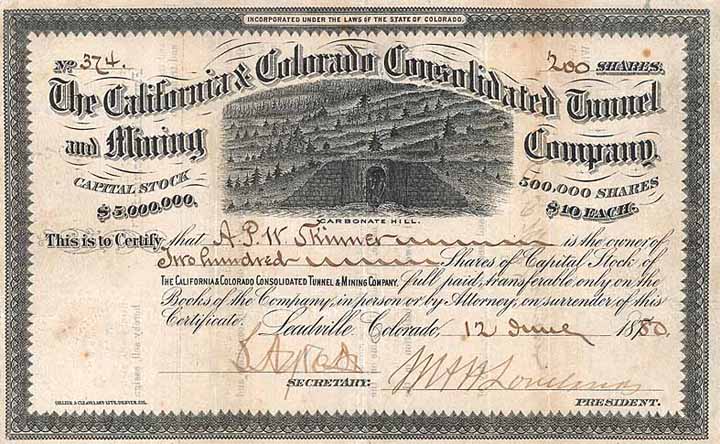 INCORPORATED UNDER THE LAWS OF THE STATE OF COLORADO.
No. 374.
200 SHARES.
The California & Colorado Consolidated Tunnel
and Mining
Company.
CAPITAL STOCK
$5,000,000.
500,000 SHARES
$10 EACH.
CARBONATE HILL.
This is to Certify that A. P. W. Skinner is the owner of
Two hundred Shares of Capital Stock of
THE CALIFORNIA & COLORADO CONSOLIDATED TUNNEL & MINING COMPANY. full paid, transferable only on the
Books of the Company, in person or by Attorney, on surrender of this
Certificate. Leadville, Colorado, 12 June 1880.
SECRETARY.
PRESIDENT.